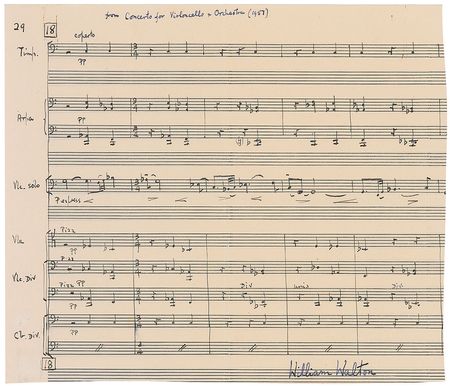 from Concerto for Violoncello & Orchestra (1957)
29
18
Timp.
coperto
pp
Arpa
pp
Vlc. solo
Vle
Pizz
pp
Vlc. Div
Pizz
Pizz pp
Div
unis
Div.
Cb. Div.
pp
18
William Walton